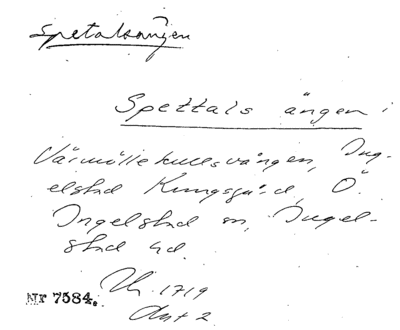 Spetalsången
Spettals ängen i
Värmöllekullsvången, Ing-
elstad Kungsgård, Ö.
Ingelstad sn, Ingel-
stad hd.
1719
NF 7584.
Akt 2